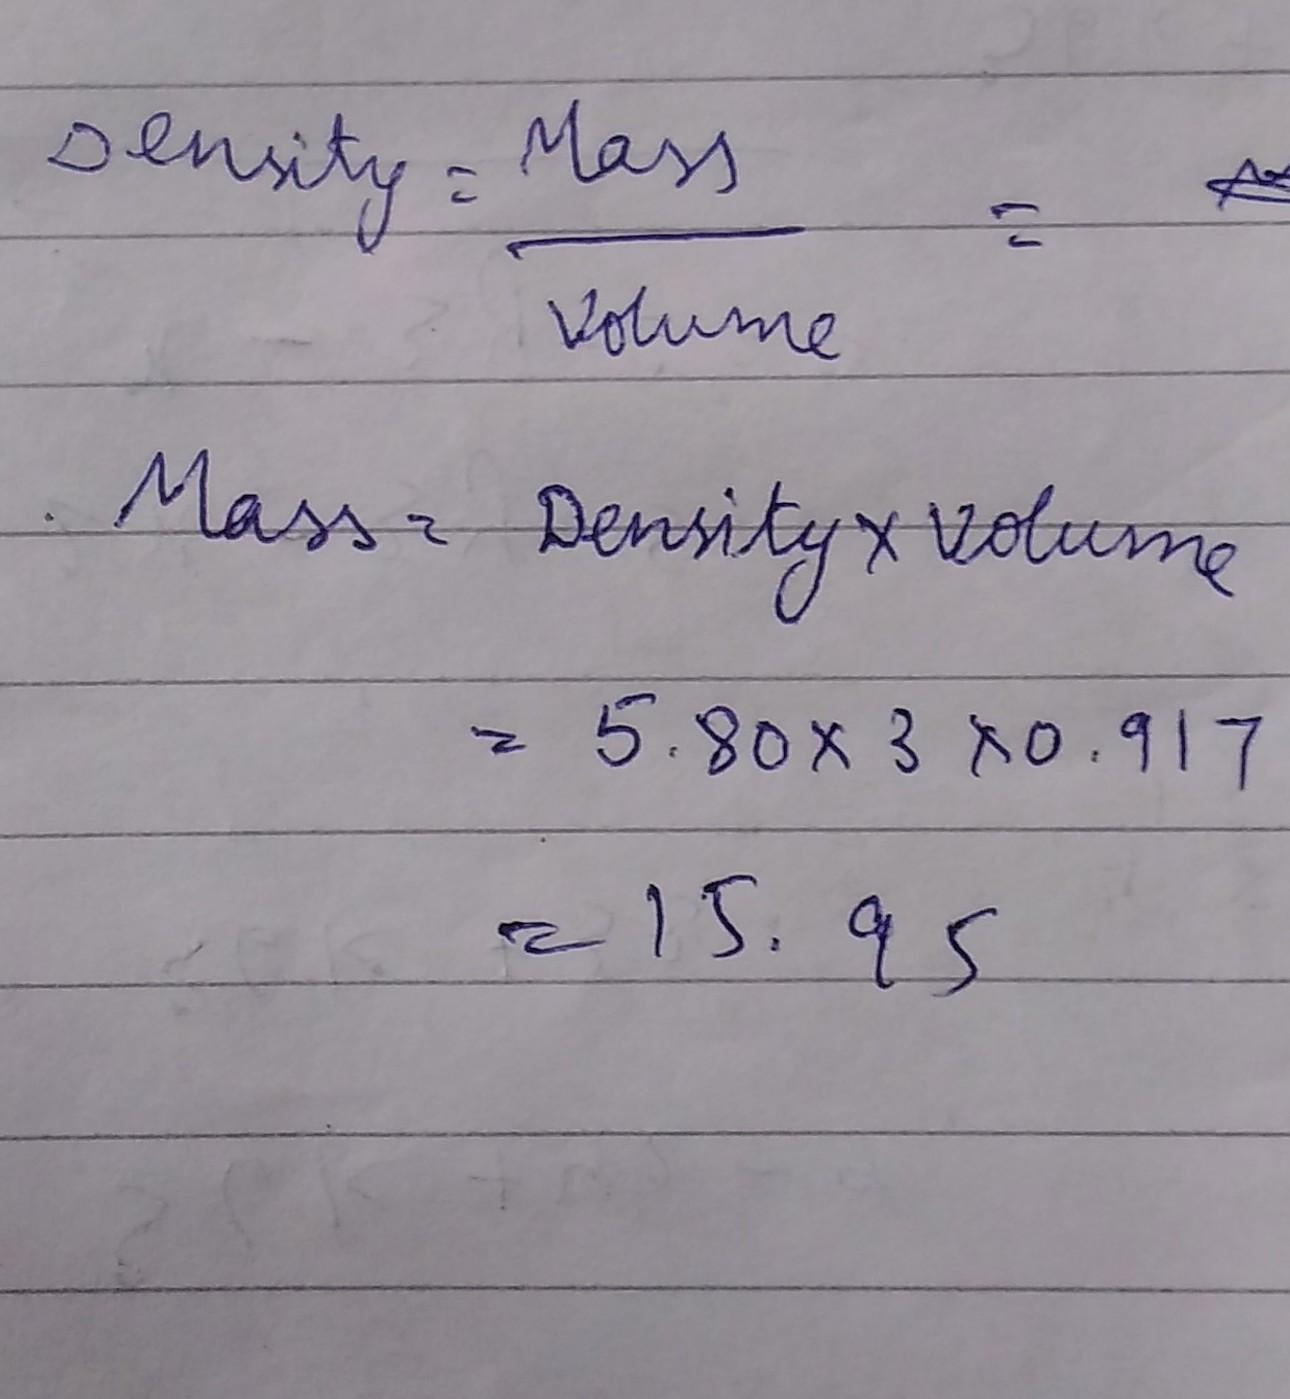 Density = Mass =
Volume
. Mass = Density x Volume
= 5.80 x 3 x 0.917
= 15.95